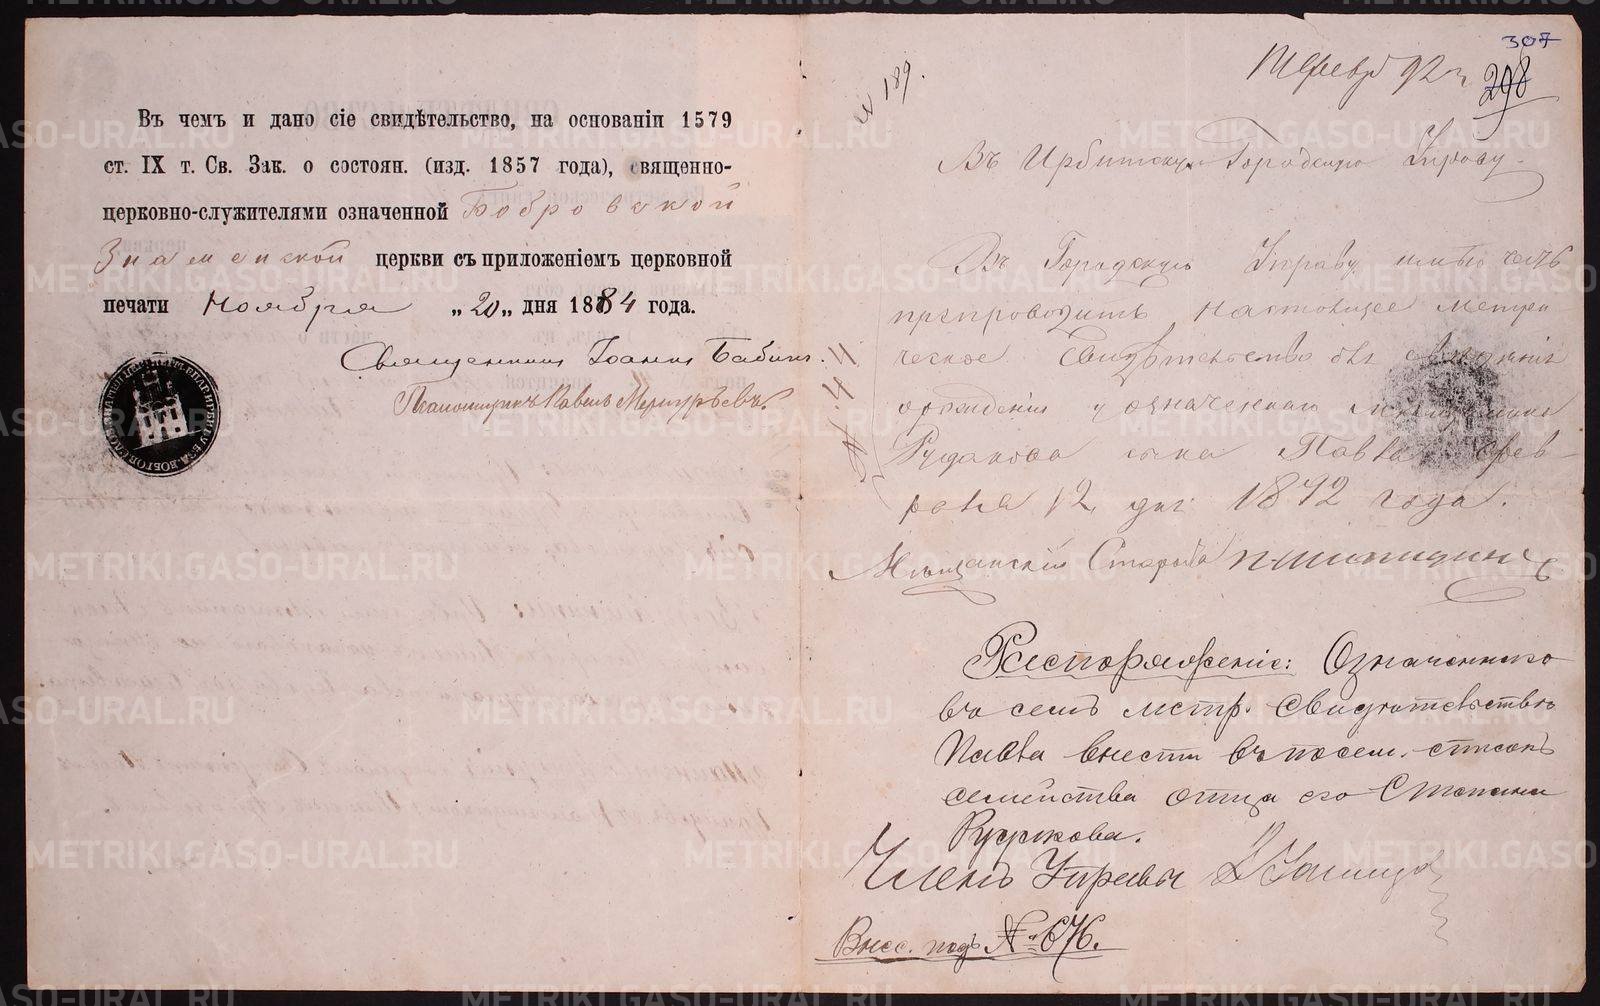 Въ чемъ и дано сіе свидѣтельство, на основаніи 1579
ст. IX т. Св. Зак. о состоян. (изд. 1857 года), священно-
церковно-служителями означенной Бобровской
Знаменской церкви съ приложеніемъ церковной
печати Ноября „20„ дня 1884 года.
Священникъ Іоаннъ Бабинъ.
Псаломщикъ Павелъ Меркурьевъ.
307
298
№ 189.
Февр 92 г
Въ Ирбитскую Городскую Управу.
Въ Городскую Управу имѣю честь
препроводить настоящее метри
ческое Свидѣтельство
о рожденіи у означеннаго
Рудакова сына Павла Фев-
раля 12 дня 1892 года.
№ 44
Мѣщанскій Староста
Распоряженіе: Означеннаго
въ семъ метр. свидѣтельствѣ
Павла внести въ посем. списокъ
семейства отца его Степана
Рудакова.
Членъ Управы
Внес. подъ № 676.
METRIKI.GASO-URAL.RU